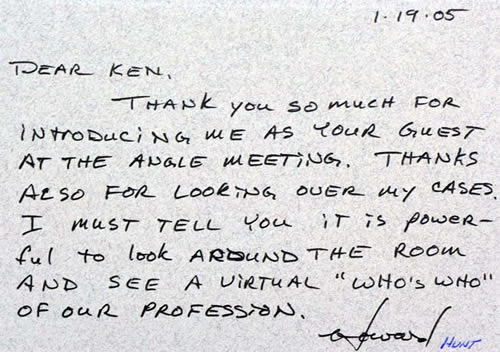 1.19.05
DEAR KEN,
THANK YOU SO MUCH FOR
INTRODUCING ME AS YOUR GUEST
AT THE ANGLE MEETING. THANKS
ALSO FOR LOOKING OVER MY CASES.
I MUST TELL YOU IT IS POWER-
ful to look AROUND THE ROOM
AND SEE A VIRTUAL "WHO'S WHO"
OF OUR PROFESSION.
Howard HUNT